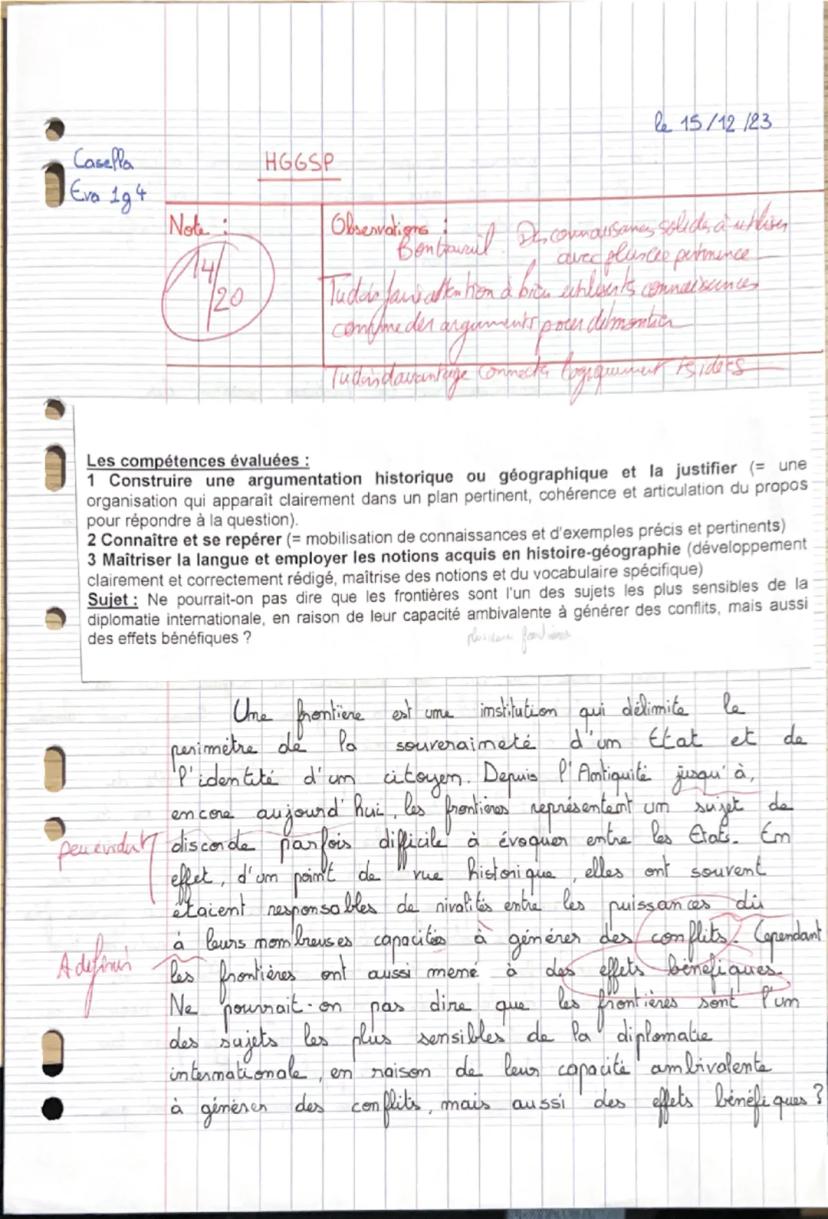 le 15/12/23
Casella
HGGSP
Eva 1g4
Note :
14/20
Observations :
Bon travail. Des connaissances solides à utiliser
avec plus de pertinence
Tu dois faire attention à bien utiliser ts connaissances
comme des arguments pour démontrer
Tu dois davantage connecter logiquement ts idées
Les compétences évaluées :
1 Construire une argumentation historique ou géographique et la justifier (= une
organisation qui apparaît clairement dans un plan pertinent, cohérence et articulation du propos
pour répondre à la question).
2 Connaître et se repérer (= mobilisation de connaissances et d'exemples précis et pertinents)
3 Maîtriser la langue et employer les notions acquis en histoire-géographie (développement
clairement et correctement rédigé, maîtrise des notions et du vocabulaire spécifique)
Sujet : Ne pourrait-on pas dire que les frontières sont l'un des sujets les plus sensibles de la
diplomatie internationale, en raison de leur capacité ambivalente à générer des conflits, mais aussi
des effets bénéfiques ?
Une frontière est une institution qui délimite le
perimètre de la souveraineté d'un Etat et de
l'identité d'un citoyen. Depuis l'Antiquité jusqu'à,
encore aujourd'hui, les frontières représentent un sujet de
discorde parfois difficile à évoquer entre les Etats. En
effet, d'un point de vue historique, elles ont souvent
étaient responsables de rivalités entre les puissances dû
à leurs nombreuses capacités à générer des conflits. Cependant
A définir
les frontières ont aussi mené à des effets bénéfiques.
Ne pourrait-on pas dire que les frontières sont l'un
des sujets les plus sensibles de la diplomatie
internationale, en raison de leur capacité ambivalente
à générer des conflits, mais aussi des effets bénéfiques ?